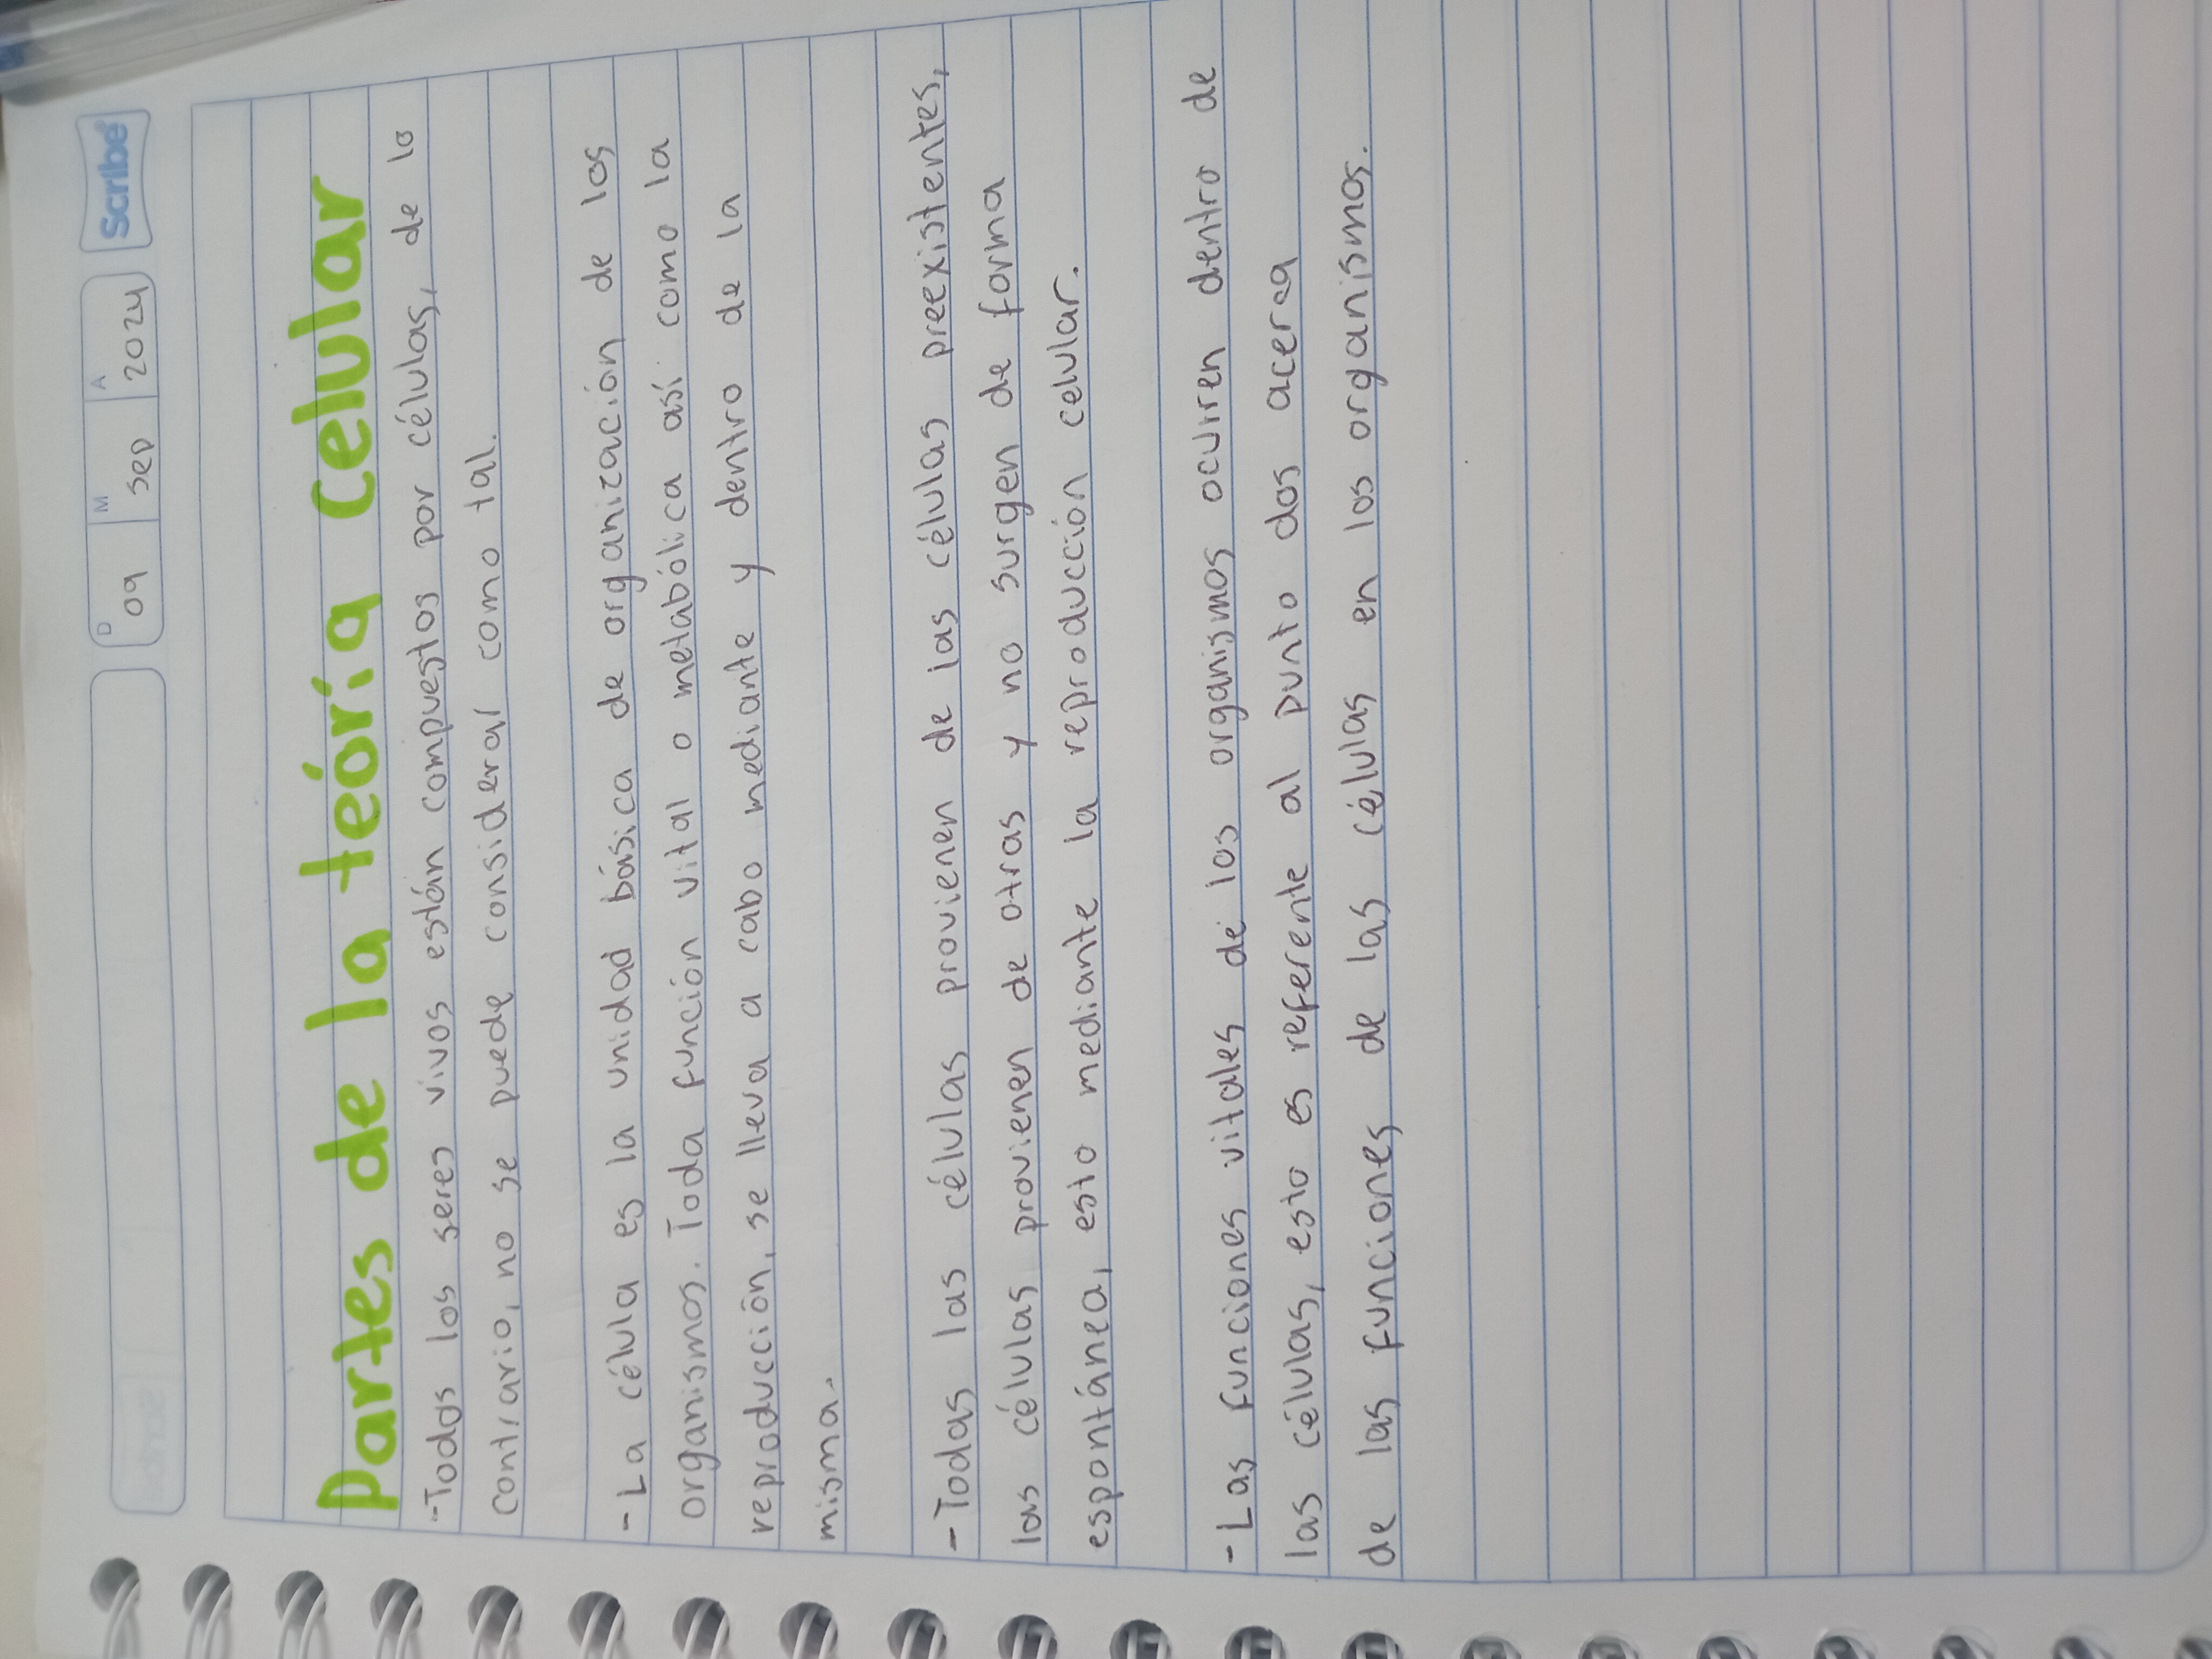 Scribe
D M A
09 sep 2024
Partes de la teoría celular
-Todos los seres vivos están compuestos por células, de lo
contrario, no se puede considerar como tal.
- La célula es la unidad básica de organización de los
organismos. Toda función vital o metabólica así como la
reproducción, se lleva a cabo mediante y dentro de la
misma.
- Todas las células provienen de las células preexistentes,
las células provienen de otras y no surgen de forma
espontánea, esto mediante la reproducción celular.
- Las funciones vitales de los organismos ocurren dentro de
las células, esto es referente al punto dos acerca
de las funciones de las células en los organismos.